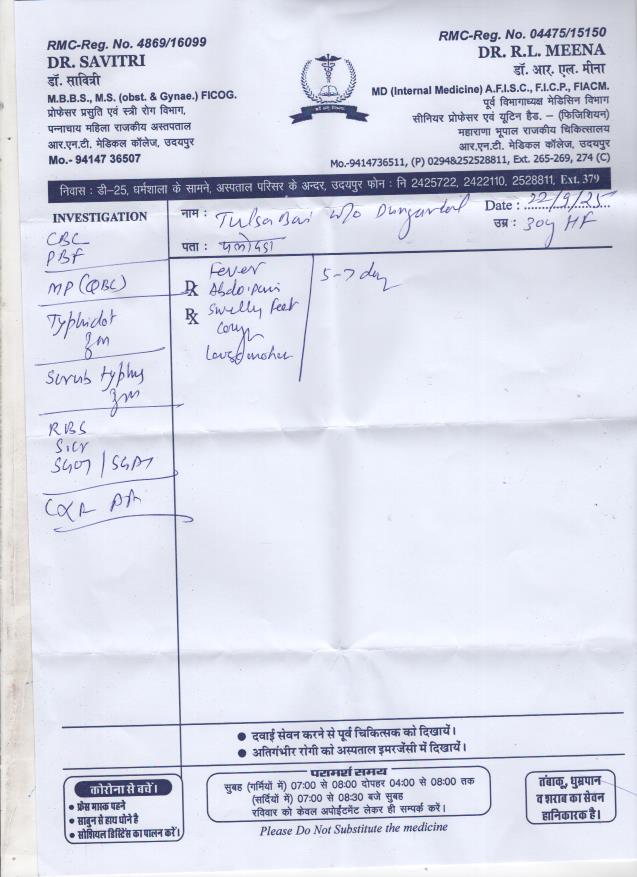 RMC-Reg. No. 4869/16099
DR. SAVITRI
डॉ. सावित्री
M.B.B.S., M.S. (obst. & Gynae.) FICOG.
प्रोफेसर प्रसुति एवं स्त्री रोग विभाग,
पन्नाधाय महिला राजकीय अस्पताल
आर.एन.टी. मेडिकल कॉलेज, उदयपुर
Mo.- 94147 36507
RMC-Reg. No. 04475/15150
DR. R.L. MEENA
डॉ. आर. एल. मीना
MD (Internal Medicine) A.F.I.S.C., F.I.C.P., FIACM.
पूर्व विभागाध्यक्ष मेडिसिन विभाग
सीनियर प्रोफेसर एवं यूटिन हैड. – (फिजिशियन)
महाराणा भूपाल राजकीय चिकित्सालय
आर.एन.टी. मेडिकल कॉलेज, उदयपुर
Mo.-9414736511, (P) 02948252528811, Ext. 265-269, 274 (C)
निवास : डी-25, धर्मशाला के सामने, अस्पताल परिसर के अन्दर, उदयपुर फोन : नि 2425722, 2422110, 2528811, Ext. 379
INVESTIGATION
CBC
PBF
MP (QBC)
Typhidot
Scrub typhus
RBS
S.Cr
SGOT / SGPT
नाम : Tulsa Bai w/o Dungarlal
Date : 22/9/25
पता :
उम्र : 30y HF
Fever
Rx
Swelly feet
Rx
5-7 day
● दवाई सेवन करने से पूर्व चिकित्सक को दिखायें।
● अतिगंभीर रोगी को अस्पताल इमरजेंसी में दिखायें।
कोरोना से बचें।
● फ्रेस मास्क पहने
● साबुन से हाथ धोने है
● सोशियल डिस्टिंस का पालन करें।
परामर्श समय
सुबह (गर्मियों में) 07:00 से 08:00 दोपहर 04:00 से 08:00 तक
(सर्दियों में) 07:00 से 08:30 बजे सुबह
रविवार को केवल अपोईंटमेंट लेकर ही सम्पर्क करें।
Please Do Not Substitute the medicine
तंबाकू, धुम्रपान
व शराब का सेवन
हानिकारक है।